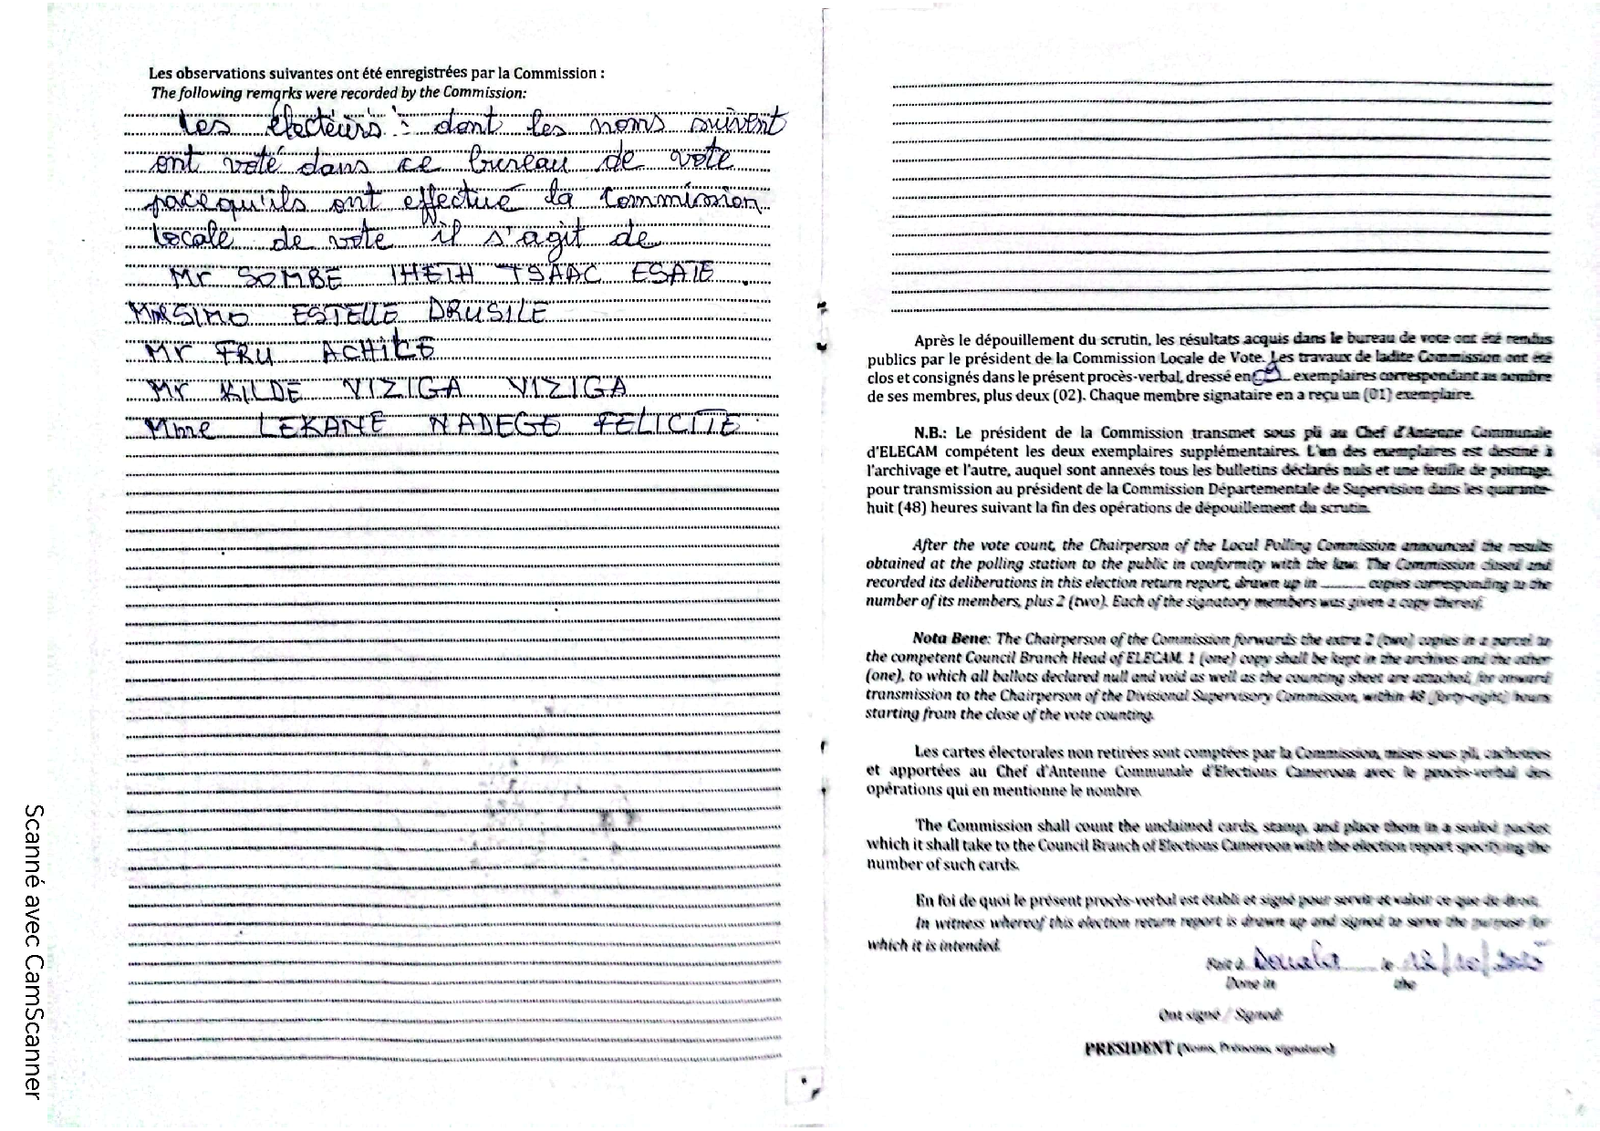 Les observations suivantes ont été enregistrées par la Commission :
The following remarks were recorded by the Commission:
Les électeurs : dont les noms suivent
ont voté dans ce bureau de vote
pacequ'ils ont effectué la Commission
Locale de vote il s'agit de
Mr SOMBE IHEIH ISAAC ESAIE
SIMO ESTELLE DRUSILE
Mr FRU ACHILE
Mr KILDE VIZIGA VIZIGA
Mme LEKANE NADEGE FELICITE
Après le dépouillement du scrutin, les résultats acquis dans le bureau de vote ont été rendus
publics par le président de la Commission Locale de Vote. Les travaux de ladite Commission ont été
clos et consignés dans le présent procès-verbal, dressé en exemplaires correspondant au nombre
de ses membres, plus deux (02). Chaque membre signataire en a reçu un (01) exemplaire.
N.B.: Le président de la Commission transmet sous pli au Chef d'Antenne Communale
d'ELECAM compétent les deux exemplaires supplémentaires. L'un des exemplaires est destiné à
l'archivage et l'autre, auquel sont annexés tous les bulletins déclarés nuls et une feuille de pointage,
pour transmission au président de la Commission Départementale de Supervision dans les quarante-
huit (48) heures suivant la fin des opérations de dépouillement du scrutin.
After the vote count, the Chairperson of the Local Polling Commission announced the results
obtained at the polling station to the public in conformity with the law. The Commission closed and
recorded its deliberations in this election return report, drawn up in ......... copies corresponding to the
number of its members, plus 2 (two). Each of the signatory members was given a copy thereof.
Nota Bene: The Chairperson of the Commission forwards the extra 2 (two) copies in a parcel to
the competent Council Branch Head of ELECAM. 1 (one) copy shall be kept in the archives and the other
(one), to which all ballots declared null and void as well as the counting sheet are attached, for onward
transmission to the Chairperson of the Divisional Supervisory Commission, within 48 (forty-eight) hours
starting from the close of the vote counting.
Les cartes électorales non retirées sont comptées par la Commission, mises sous pli, cachetées
et apportées au Chef d'Antenne Communale d'Elections Cameroon avec le procès-verbal des
opérations qui en mentionne le nombre.
The Commission shall count the unclaimed cards, stamp, and place them in a sealed packet
which it shall take to the Council Branch of Elections Cameroon with the election report specifying the
number of such cards.
En foi de quoi le présent procès-verbal est établi et signé pour servir et valoir ce que de droit.
In witness whereof this election return report is drawn up and signed to serve the purpose for
which it is intended.
Fait à Douala le 12/10/2025
Done in the
Ont signé / Signed:
PRESIDENT (Noms, Prénoms, signature)
Scanné avec CamScanner